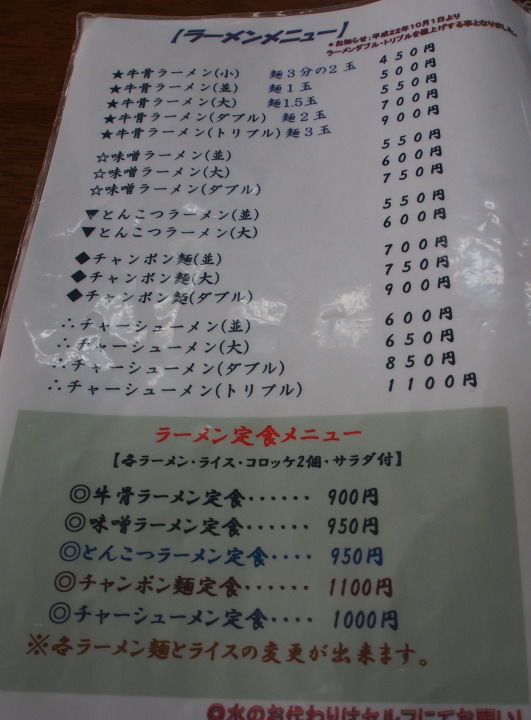 【ラーメンメニュー】
*お知らせ:平成22年10月1日より
ラーメンダブル・トリプルを値上げする事となりました。
★牛骨ラーメン(小) 麺3分の2玉 450円
★牛骨ラーメン(並) 麺1玉 500円
★牛骨ラーメン(大) 麺1.5玉 550円
★牛骨ラーメン(ダブル) 麺2玉 700円
★牛骨ラーメン(トリプル) 麺3玉 900円
☆味噌ラーメン(並) 550円
☆味噌ラーメン(大) 600円
☆味噌ラーメン(ダブル) 750円
▼とんこつラーメン(並) 550円
▼とんこつラーメン(大) 600円
◆チャンポン麺(並) 700円
◆チャンポン麺(大) 750円
◆チャンポン麺(ダブル) 900円
∴チャーシューメン(並) 600円
∴チャーシューメン(大) 650円
∴チャーシューメン(ダブル) 850円
∴チャーシューメン(トリプル) 1100円
ラーメン定食メニュー
【各ラーメン・ライス・コロッケ2個・サラダ付】
◎牛骨ラーメン定食‥‥‥ 900円
◎味噌ラーメン定食‥‥‥ 950円
◎とんこつラーメン定食‥‥ 950円
◎チャンポン麺定食‥‥‥ 1100円
◎チャーシューメン定食‥‥ 1000円
※各ラーメン麺とライスの変更が出来ます。
◎水のお代わりはセルフにてお願いし